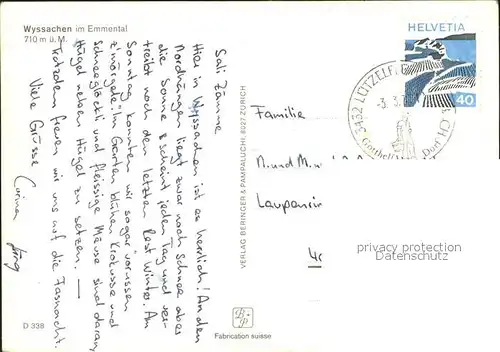 Wyssachen im Emmental
710 m ü. M.
Sali Zämme
Hier in Wyssachen ist es herrlich! An den
Nordhängen liegt zwar noch Schnee aber
die Sonne scheint jeden Tag und ver-
treibt noch den letzten Rest Winter. Am
Sonntag konnten wir sogar vorussen
z'mörgele". Im Garten blühen Krokusse und
Schneeglöckli und fleissige Mäuse sind daran,
Hügel neben Hügel zu setzen. —
Trotzdem freuen wir uns auf die Fasnacht.
Viele Grüsse
Jürg
D 338
VERLAG BERINGER & PAMPALUCHI, 8027 ZÜRICH
BP
Fabrication suisse
HELVETIA
40
3432 LÜTZELFL
-3. 3.
Gotthelf
Dorf
Familie
M. und M.
Laupen
privacy protection
by